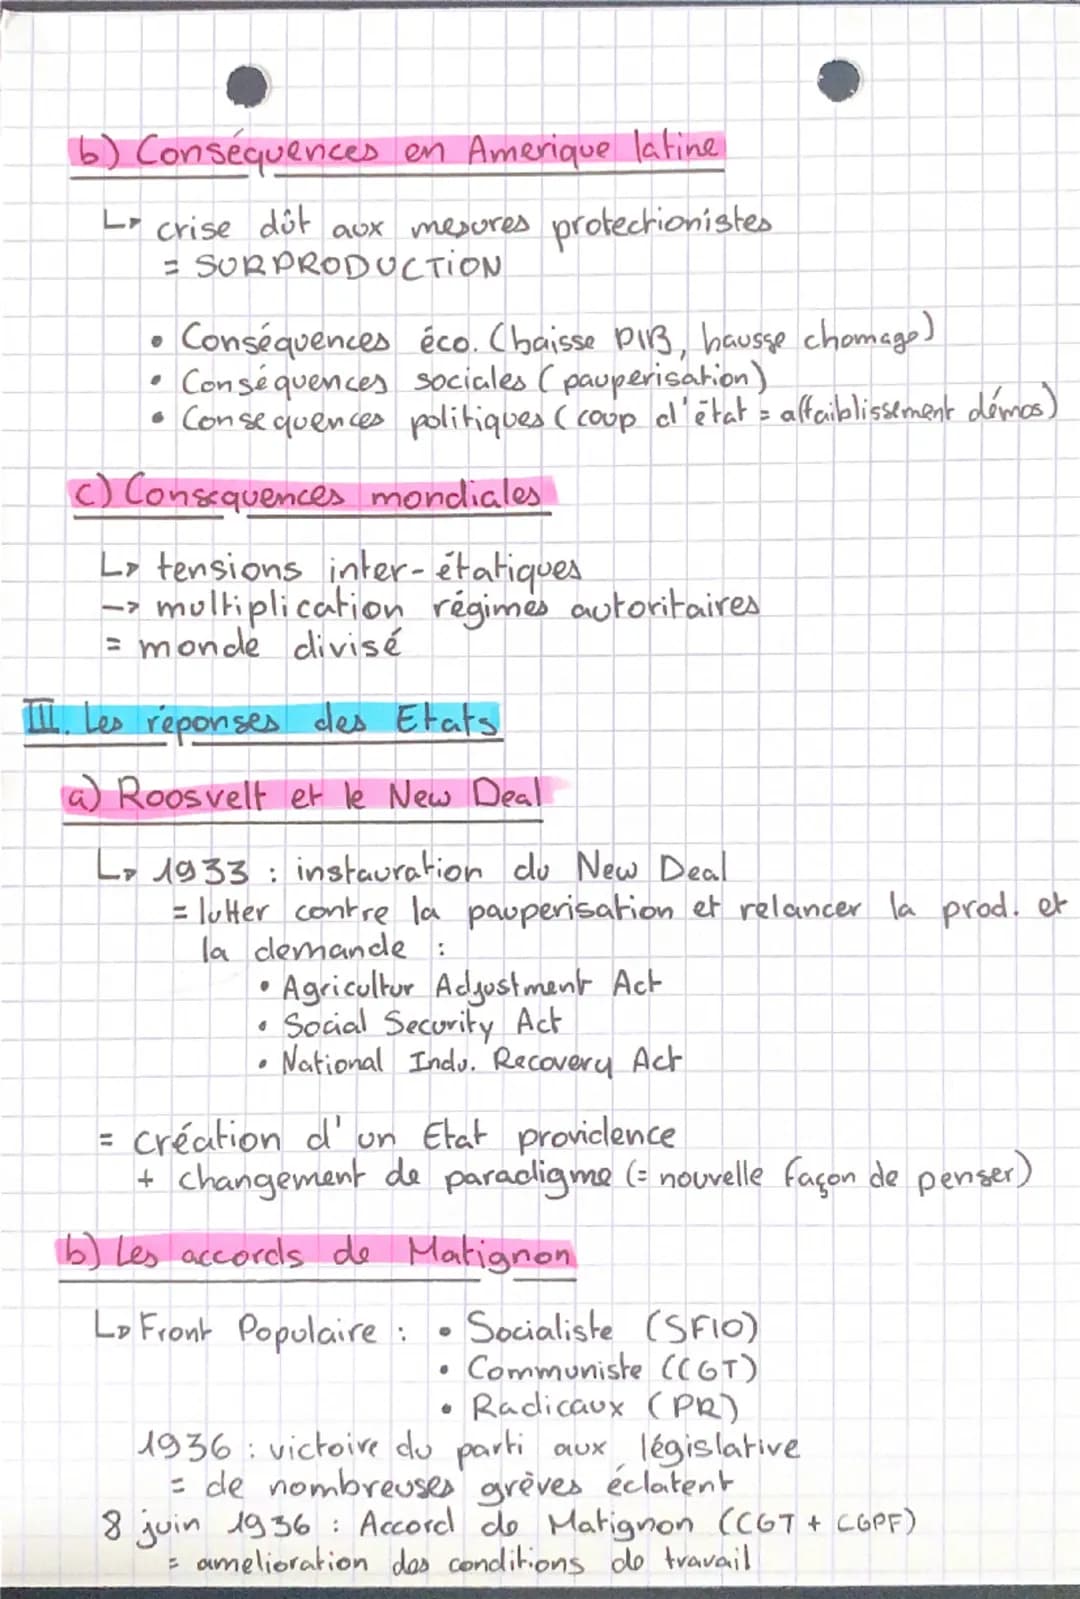 b) Conséquences en Amerique latine
↳ crise dût aux mesures protectionistes
= SURPRODUCTION
• Conséquences éco. (baisse PIB, hausse chomage)
• Conséquences sociales (pauperisation)
• Consequences politiques (coup d'état = affaiblissement démos)
c) Consequences mondiales
↳ tensions inter-étatiques
-> multiplication régimes autoritaires
= monde divisé
III. Les réponses des Etats
a) Roosvelt et le New Deal
↳ 1933 : instauration du New Deal
= lutter contre la pauperisation et relancer la prod. et
la demande :
• Agricultur Adjustment Act
• Social Security Act
• National Indu. Recovery Act
= création d'un Etat providence
+ changement de paradigme (= nouvelle façon de penser)
b) Les accords de Matignon
↳ Front Populaire : • Socialiste (SFIO)
• Communiste (CGT)
• Radicaux (PR)
1936 : victoire du parti aux législative
= de nombreuses grèves éclatent
8 juin 1936 : Accord de Matignon (CGT + CGPF)
= amelioration des conditions de travail